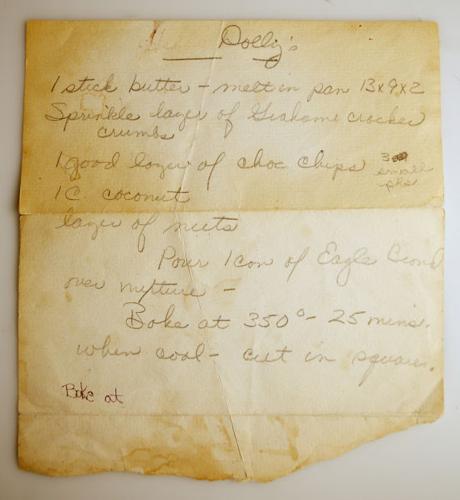 Dolly's
1 stick butter – melt in pan 13x9x2
Sprinkle layer of Grahams cracker
crumbs
1 good layer of choc chips 3 small pks
1 C coconut
layer of nuts
Pour 1 can of Eagle Brand
over mixture –
Bake at 350° – 25 mins.
when cool – cut in squares.
Bake at